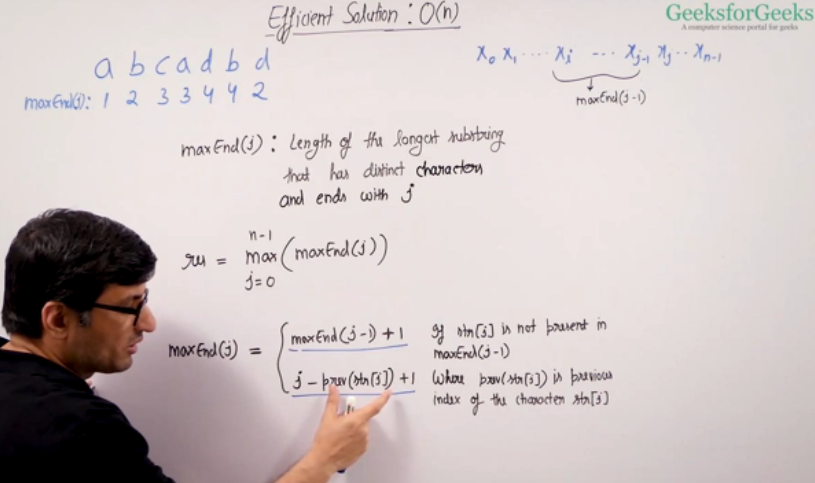 Efficient Solution : O(n)
GeeksforGeeks
A computer science portal for geeks
a b c a d b d
maxEnd(j): 1 2 3 3 4 4 2
x₀ x₁ ···· xᵢ --- xⱼ₋₁ xⱼ ·· xₙ₋₁
maxEnd(j-1)
maxEnd(j) : Length of the longest substring
that has distinct characters
and ends with j
n-1
res = max (maxEnd(j))
j=0
maxEnd(j-1) + 1 If str[j] is not present in
maxEnd(j) = maxEnd(j-1)
j - prev(str[j]) + 1 Where prev(str[j]) is previous
index of the character str[j]